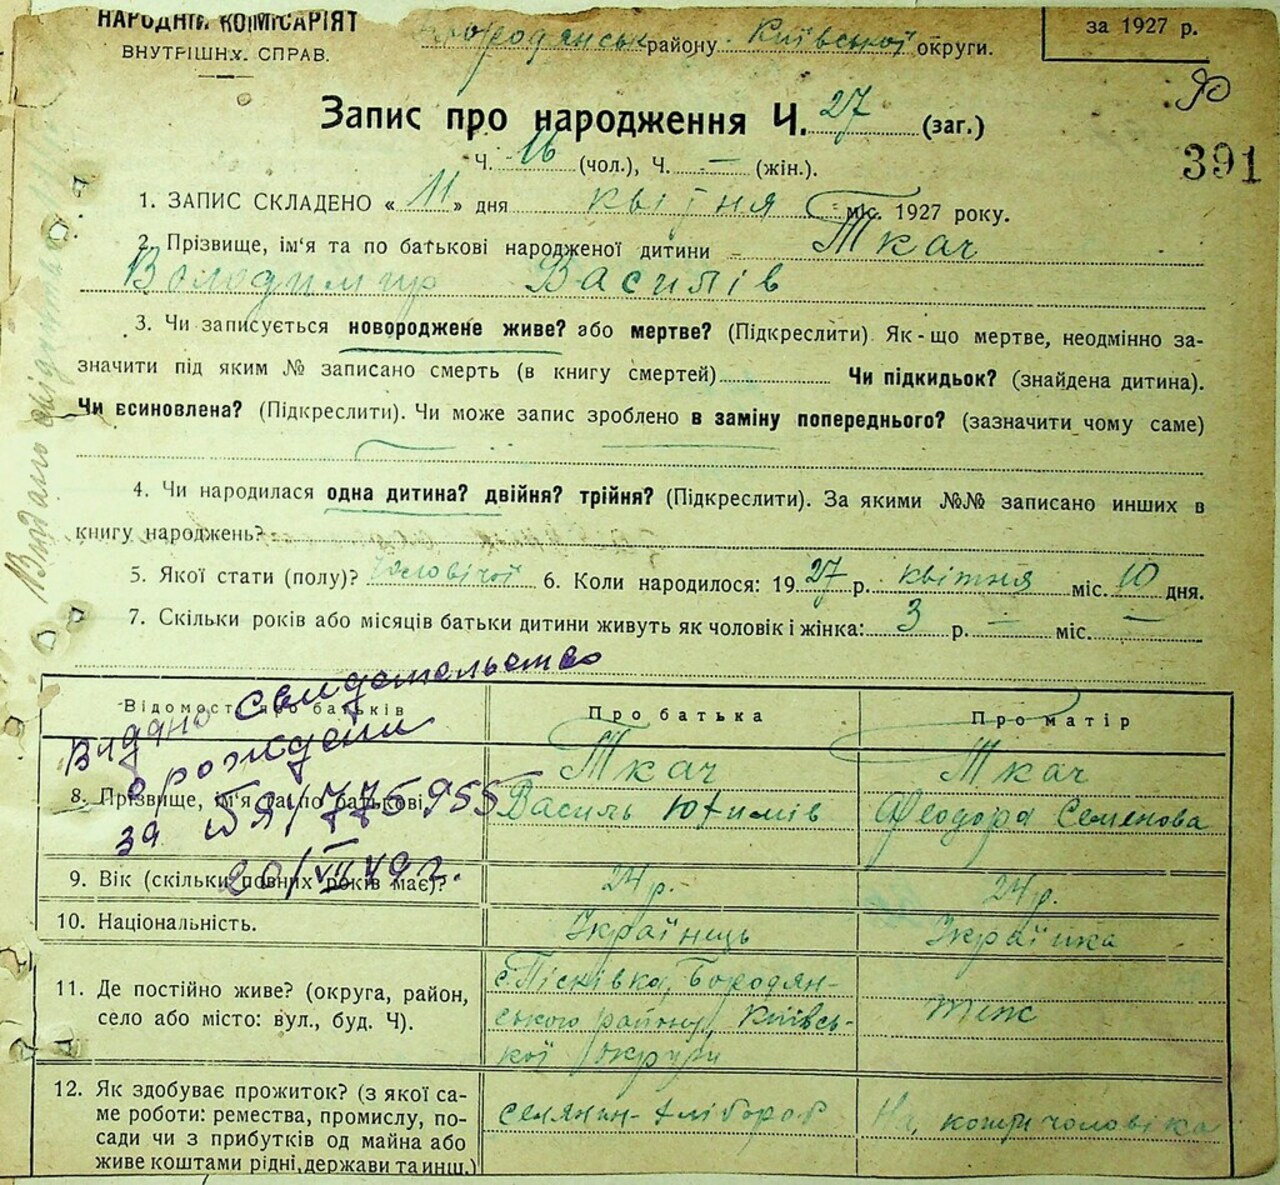 НАРОДНІЙ КОМІСАРІЯТ
ВНУТРІШНХ. СПРАВ.
Бородянськ району Київської округи.
за 1927 р.
90
391
Запис про народження Ч. 27 (заг.)
Ч. 16 (чол.), Ч. — (жін.).
1. ЗАПИС СКЛАДЕНО « 11 » дня квітня міс. 1927 року.
2. Прізвище, ім'я та по батькові народженої дитини Ткач
Володимир Василів
3. Чи записується новороджене живе? або мертве? (Підкреслити). Як-що мертве, неодмінно за-
значити під яким № записано смерть (в книгу смертей) Чи підкидьок? (знайдена дитина).
Чи всиновлена? (Підкреслити). Чи може запис зроблено в заміну попереднього? (зазначити чому саме)
4. Чи народилася одна дитина? двійня? трійня? (Підкреслити). За якими №№ записано инших в
книгу народжень?
5. Якої стати (полу)? Чоловічої 6. Коли народилося: 19 27 р. квітня міс. 10 дня.
7. Скільки років або місяців батьки дитини живуть як чоловік і жінка: 3 р. — міс. —
Відомості про батьків Про батька Про матір
Видано свидетельство
о рождени
за 775955
20/VII 49 г.
8. Прізвище, ім'я та по батькові Ткач Ткач
Василь Юхимів Феодора Семенова
9. Вік (скільки повних років має)? 24 р. 24 р.
10. Національність. Українець Українка
11. Де постійно живе? (округа, район,
село або місто: вул., буд. Ч).
с. Пісківка, Бородян-
ського району, Київсь-
кої округи
теж
12. Як здобуває прожиток? (з якої са-
ме роботи: ремества, промислу, по-
сади чи з прибутків од майна або
живе коштами рідні, держави та инш.)
селянин-хлібороб
На кошти чоловіка
Видано свідоцтво